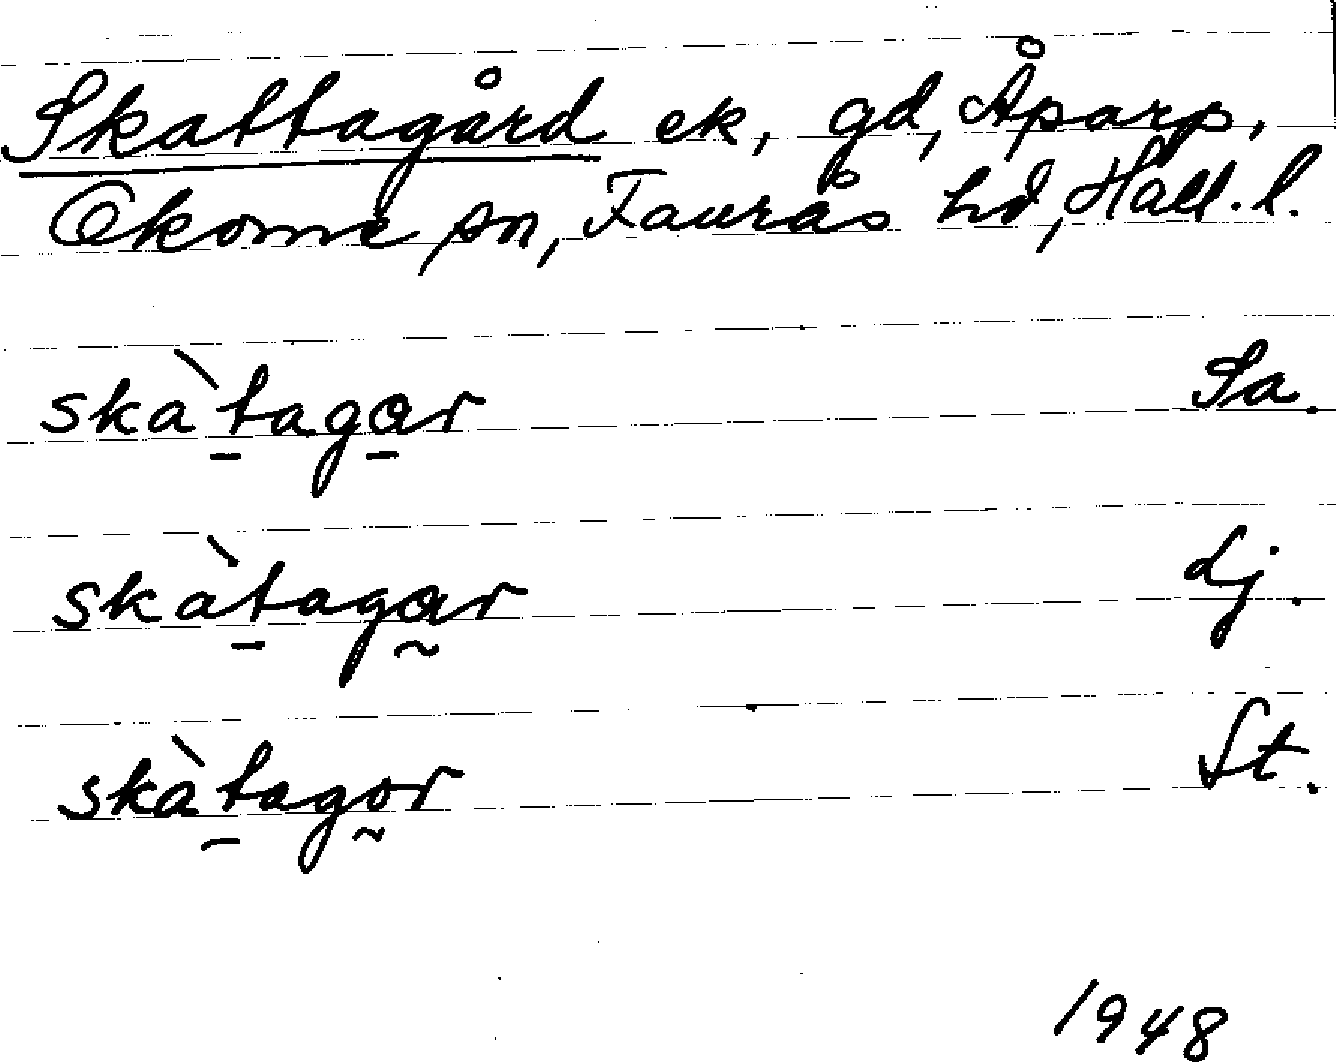 Skattagård ek, gd, Åparp,
Okome sn, Faurås hd, Hall. l.
skàtagar Sa.
skàtagar Lj.
skàtagor St.
1948